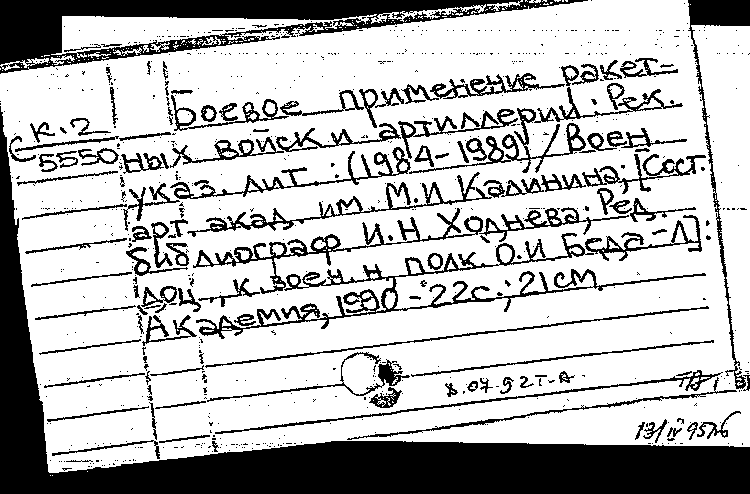 Боевое применение ракет-
К.2
ных войск и артиллерии: Рек.
5550
указ. лит. : (1984-1989) / Воен.
арт. акад. им. М.И. Калинина; [Сост.
библиограф. И.Н. Ходнева; Ред.
доц., к. воен. н, полк. О.И Беда-Л]:
Академия, 1990 - 22с.; 21см.
8.07.92 Т-А
13/IV 95